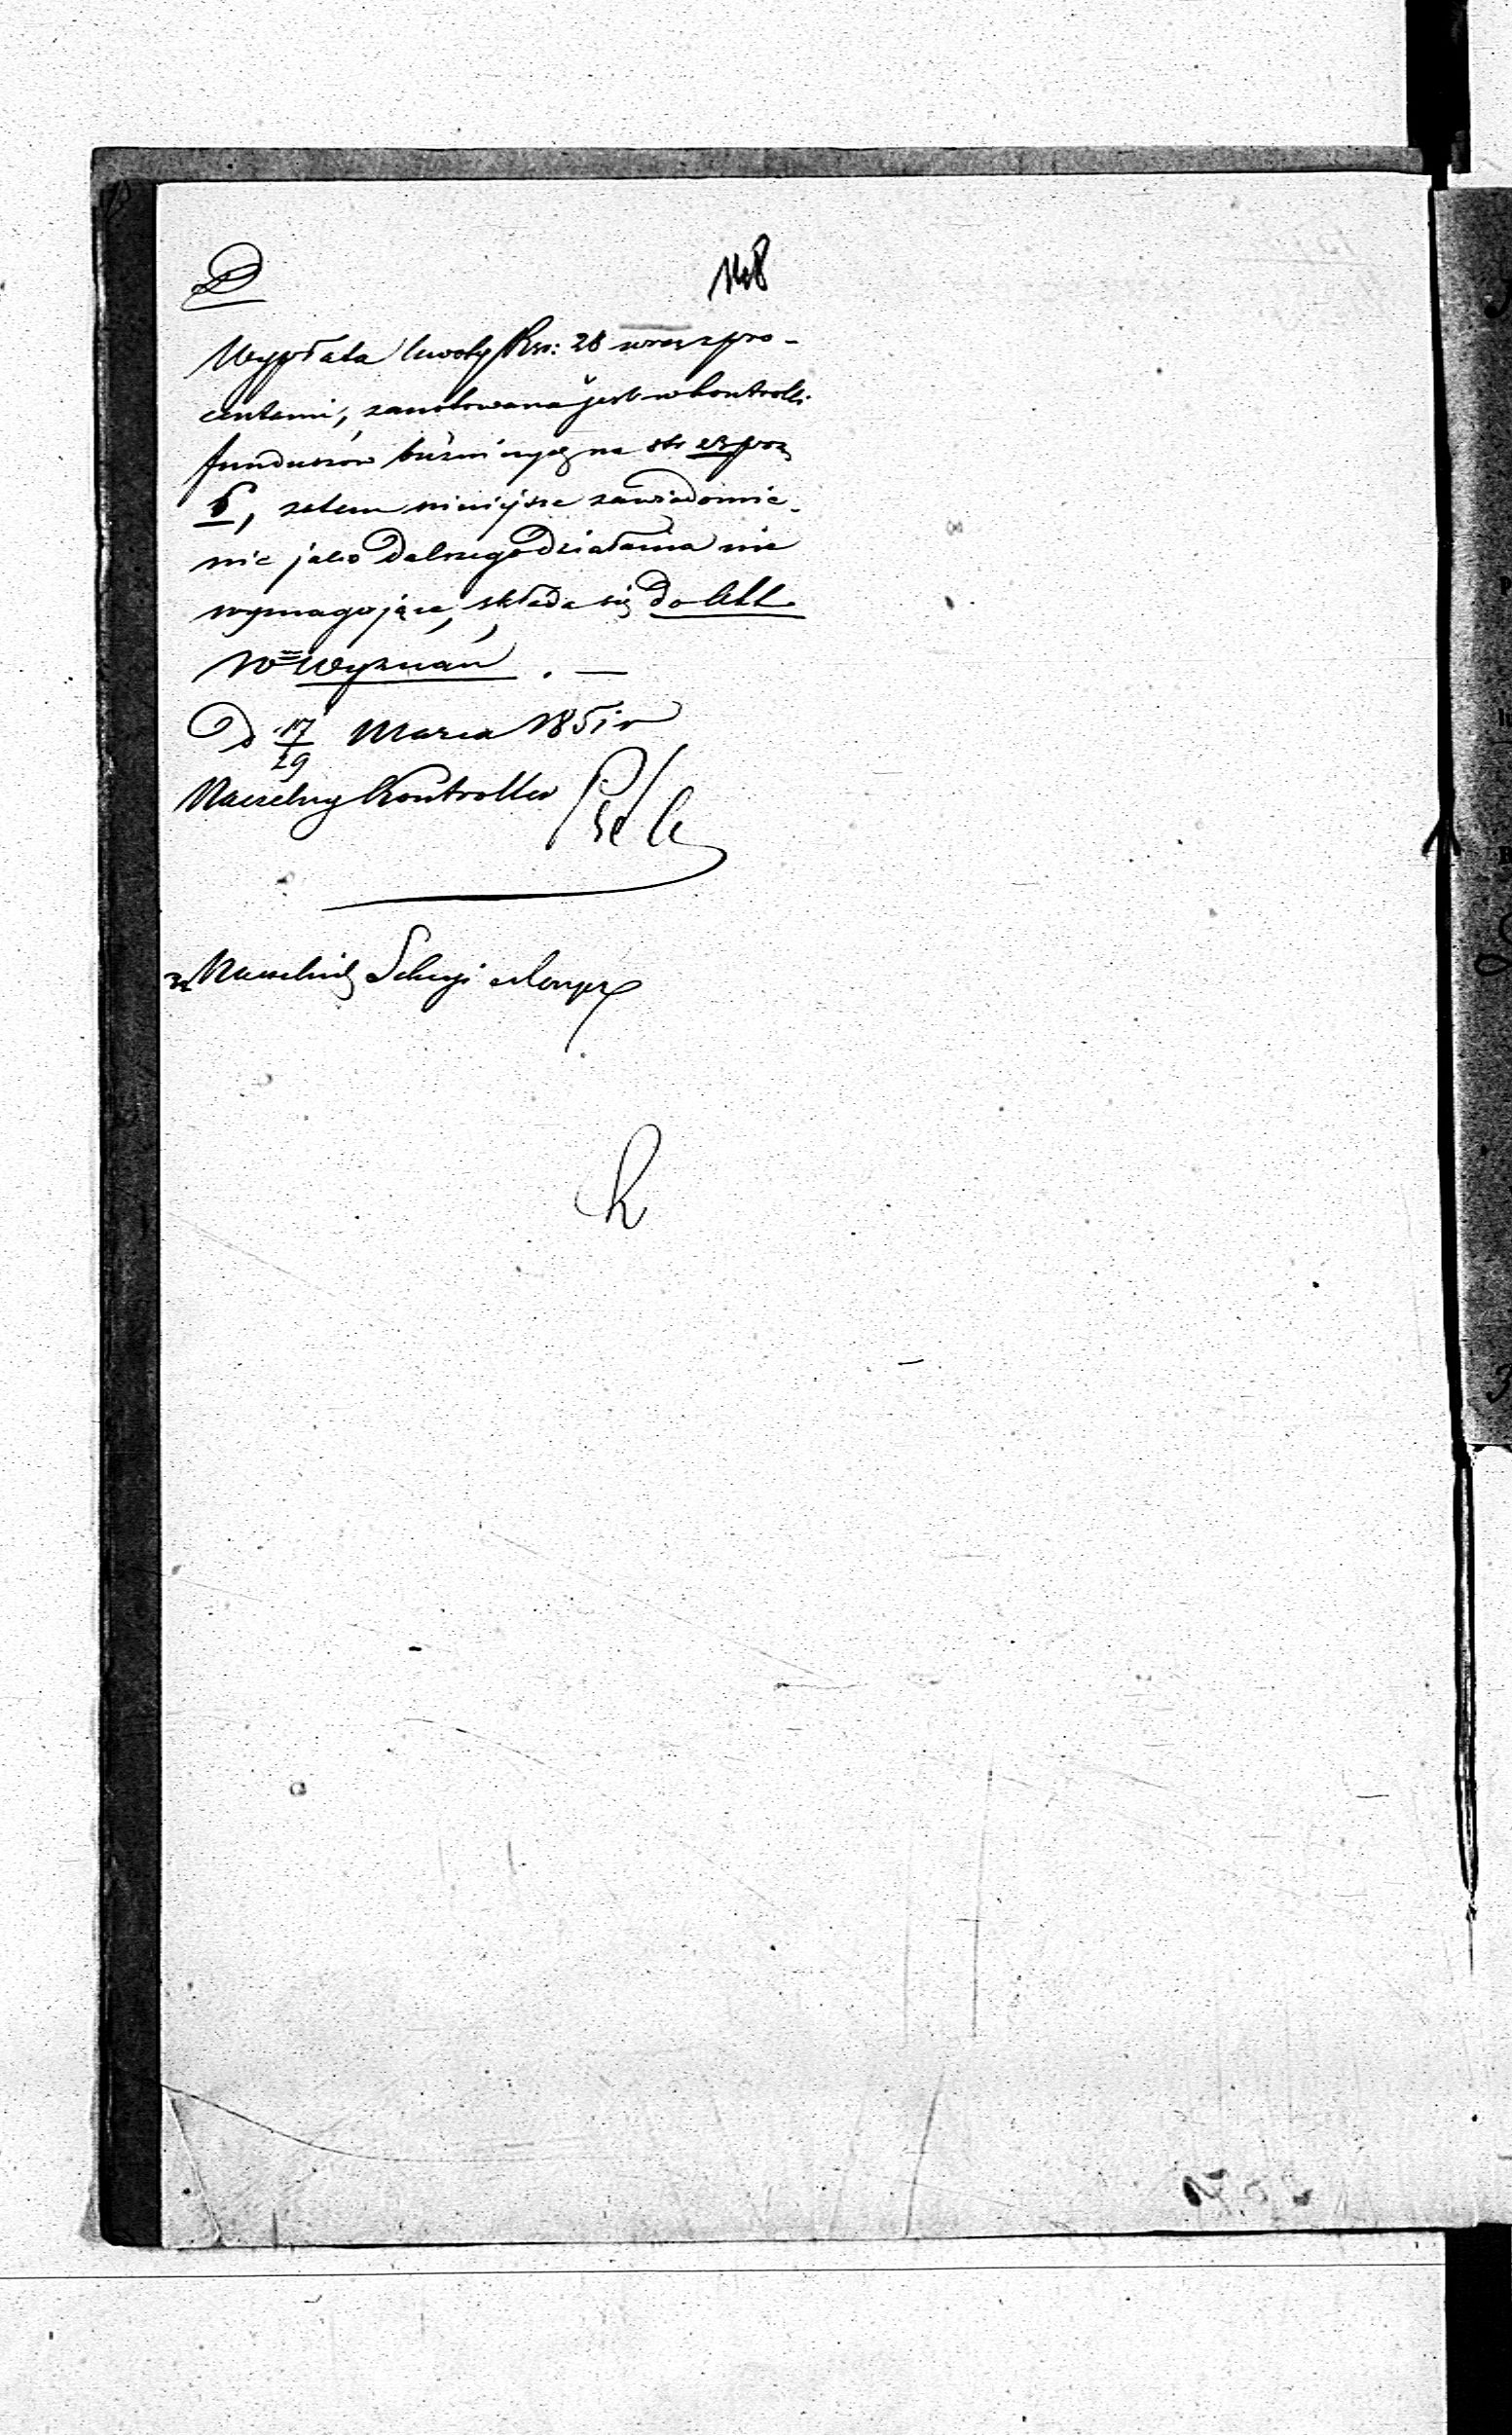 D
148
Wypłata kwoty Rsr: 28 wraz z pro-
centami, zanotowana jest w kontrolli
funduszów bużniczych na str 23 poz
6, zatem niniejsze zawiadomie-
nie jako dalszego działania nie
wymagające, składa się do Akt
W= Wyznań . —
D 17/29 Marca 1851 r
Naczelny Kontroller
Naczelnik Sekcyi